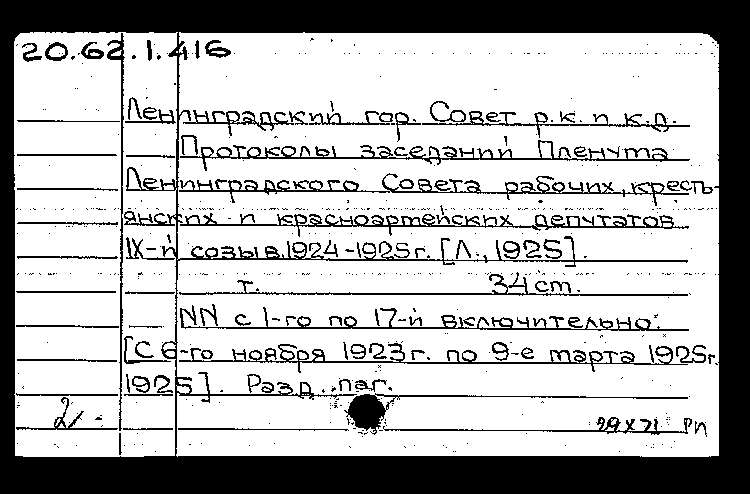 20.62.1.416
Ленинградский гор. Совет р.к. и к.д.
Протоколы заседаний Пленума
Ленинградского Совета рабочих, кресть-
янских и красноармейских депутатов
IX-й созыв. 1924-1925 г. [Л., 1925].
т. 34 cm.
NN с 1-го по 17-й включительно.
[С 6-го ноября 1923 г. по 9-е марта 1925 г.
1925]. Разд. паг.
29 X 71 РП